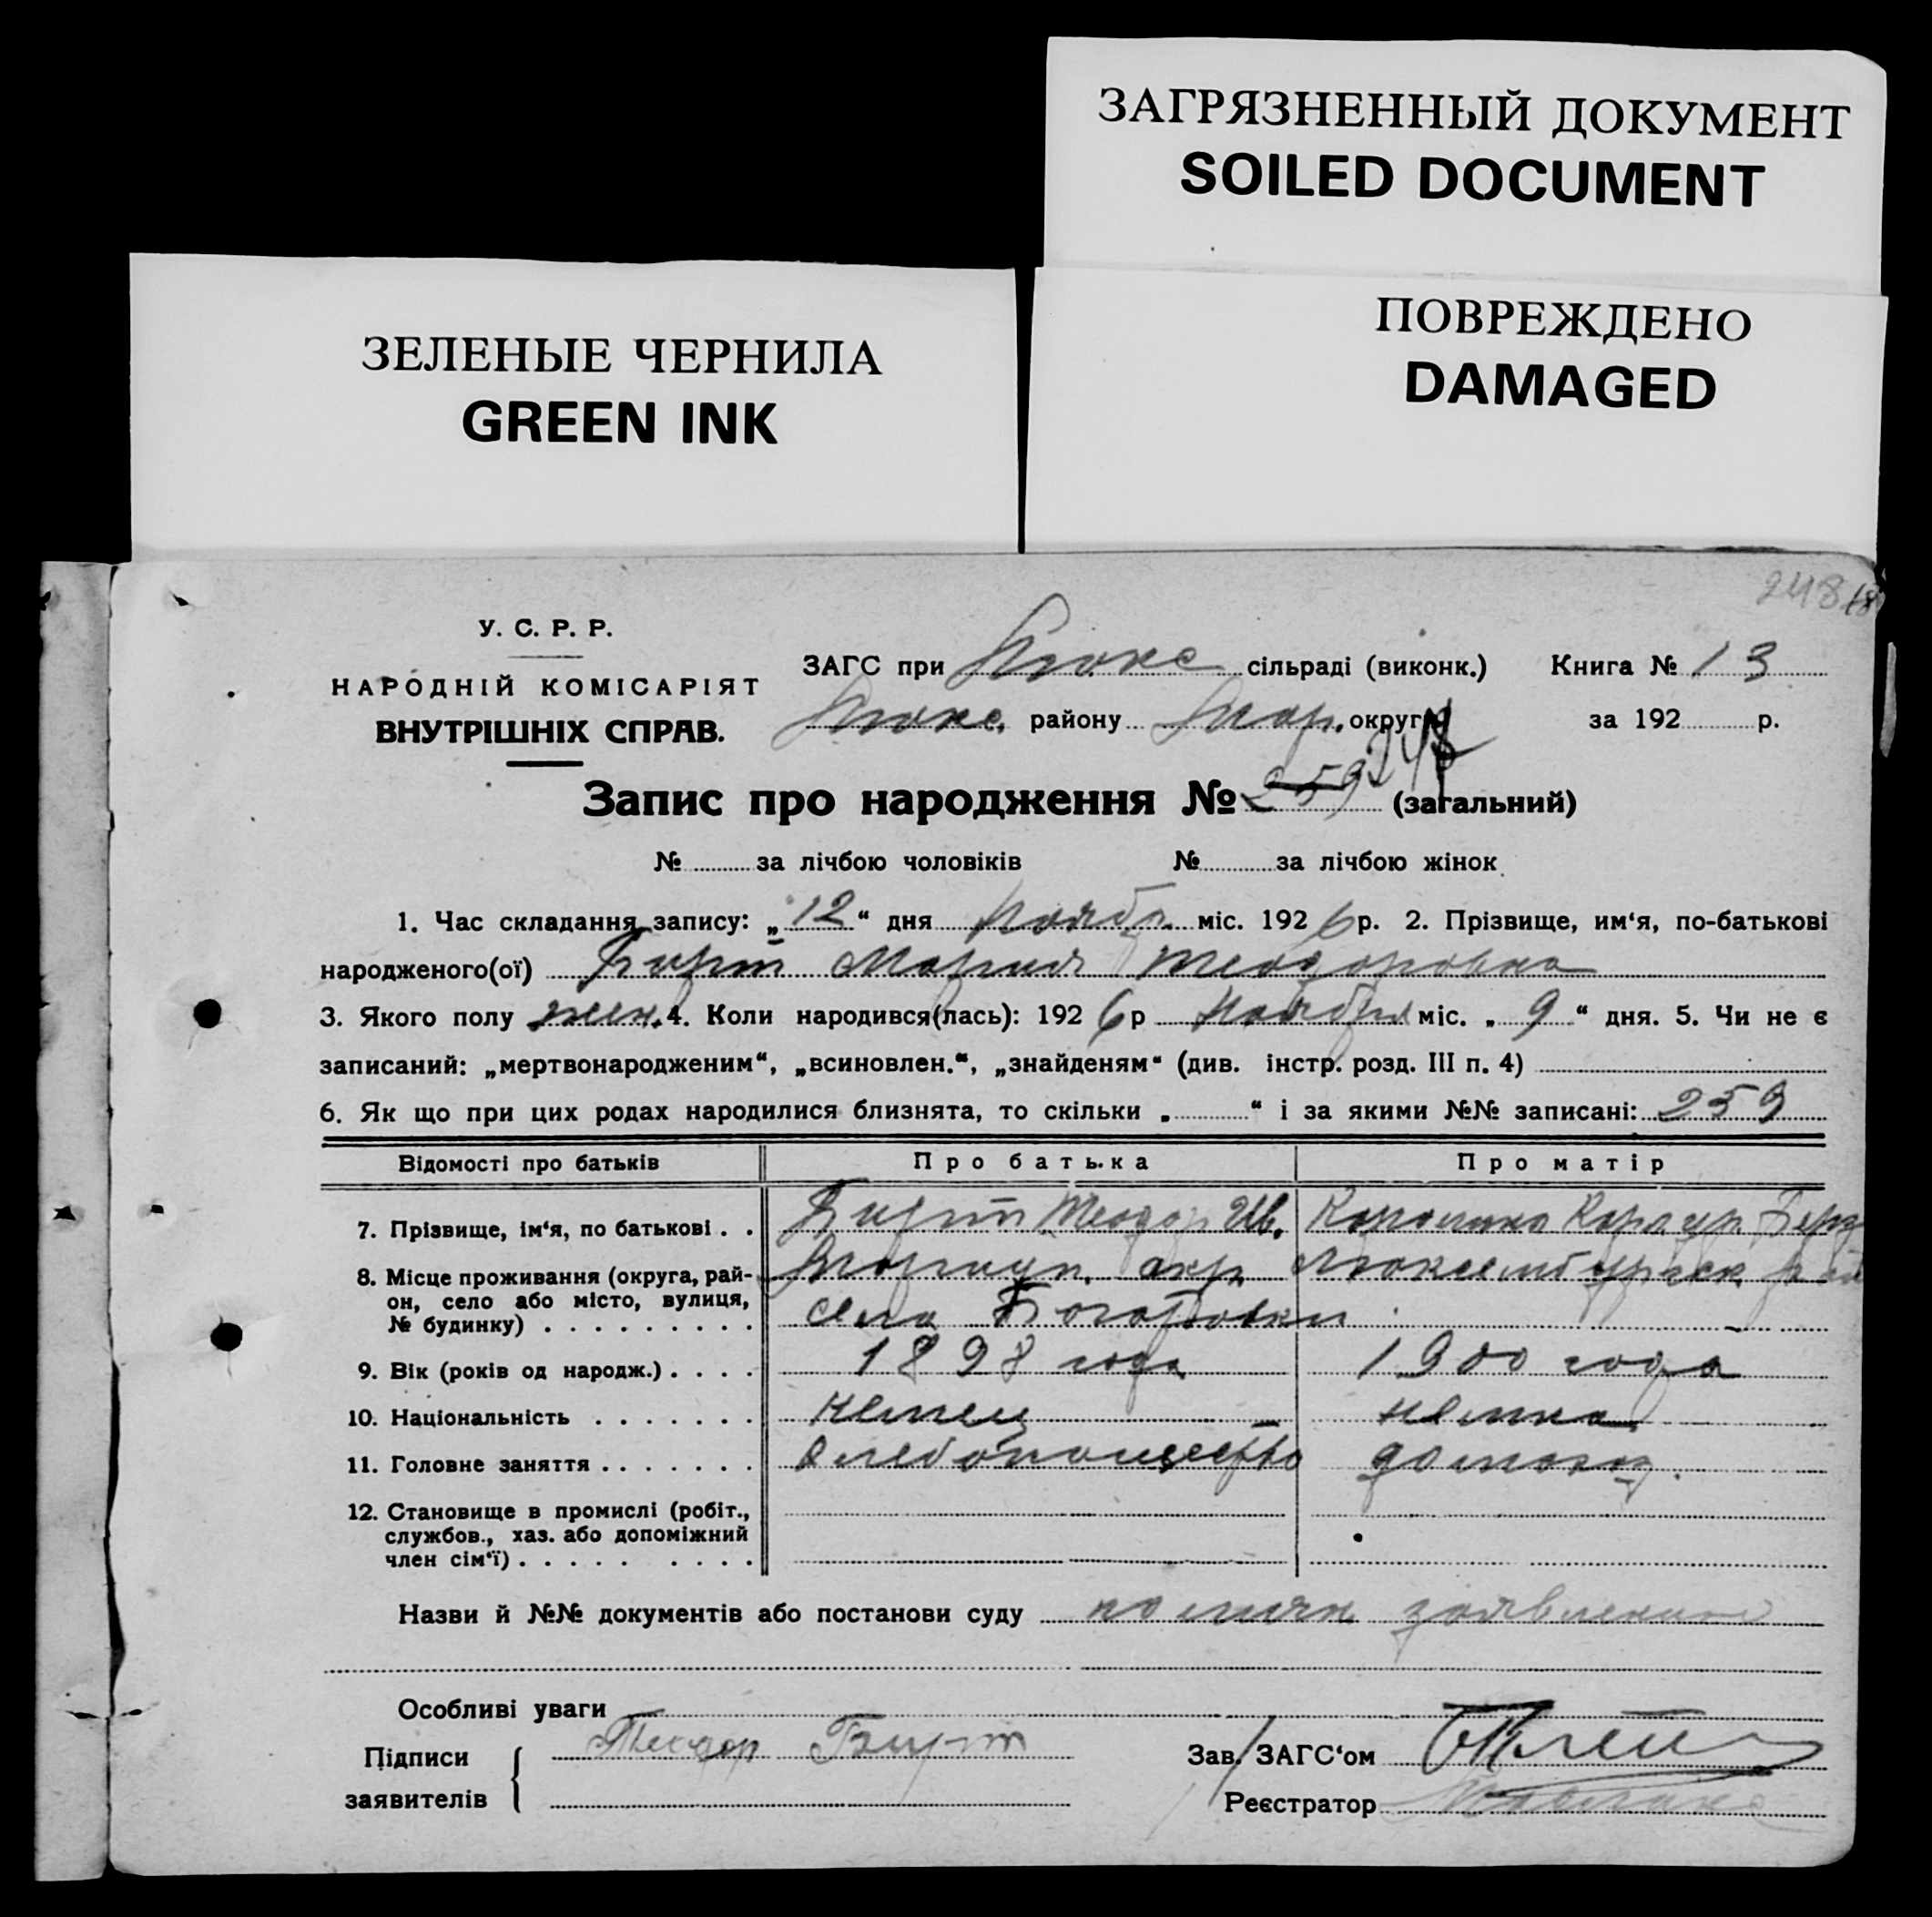 ЗАГРЯЗНЕННЫЙ ДОКУМЕНТ
SOILED DOCUMENT
ЗЕЛЕНЫЕ ЧЕРНИЛА
GREEN INK
ПОВРЕЖДЕНО
DAMAGED
248
У. С. Р. Р.
НАРОДНІЙ КОМІСАРІЯТ
ВНУТРІШНІХ СПРАВ.
ЗАГС при Люкс сільраді (виконк.) Книга № 13
Люкс. району Мар. округи за 192 р.
Запис про народження № 259 248 (загальний)
№ за лічбою чоловіків № за лічбою жінок
1. Час складання запису: „12“ дня Ноябр. міс. 1926 р. 2. Прізвище, им‘я, по-батькові
народженого(ої) Бирт Мария Теодоровна
3. Якого полу жен. 4. Коли народився(лась): 1926 р Ноября міс. „9“ дня. 5. Чи не є
записаний: „мертвонародженим“, „всиновлен.“, „знайденям“ (див. інстр. розд. III п. 4)
6. Як що при цих родах народилися близнята, то скільки „ “ і за якими №№ записані: 259
Відомості про батьків Про батька Про матір
7. Прізвище, ім‘я, по батькові . . Бирт Теодор Ив. Каролина Карл ур.
8. Місце проживання (округа, рай- Мариуп. окр. Люксембургск
он, село або місто, вулиця, села
№ будинку) . . . . . . . . .
9. Вік (років од народж.) . . . . 1898 года 1900 года
10. Національність . . . . . . . немец немка
11. Головне заняття . . . . . . . хлебопашество домохоз.
12. Становище в промислі (робіт.,
службов., хаз. або допоміжний
член сім‘ї) . . . . . . . . .
Назви й №№ документів або постанови суду по личн заявлению
Особливі уваги
Підписи Теодор Бирт Зав. ЗАГС‘ом
заявителів Реєстратор